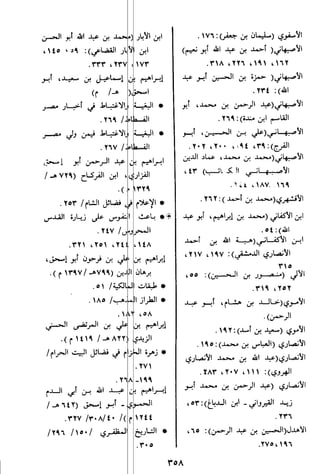 الأسفوي (سليمان بن جعفر): ١٧٦.
الأصبهاني (أحمد بن عبد الله أبو نعيم)
١٦٢، ١٩١، ٢٢٦، ٣١٨.
الأصبهاني (حمزة بن الحسن أبو عبد
الله): ٢٣٤.
الأصبهاني (عبد الرحمن بن محمد، أبو
القاسم ابن مندة): ٢٦٩.
الأصبهاني (علي بن الحسين، أبو
الفرج): ٣٩، ٩٤، ٢٠٠، ٢٠٢.
الأصبهاني (محمد بن محمد، عماد الدين
الأصبهاني الكاتب)، ٤٣،
١٦٩، ١٨٧،
الأقشهري (محمد بن أحمد): ٢٦٢.
ابن الأكفاني (محمد بن إبراهيم، أبو عبد
الله): ٥٤.
ابن الأكفاني (هبة الله بن أحمد
الأنصاري الدمشقي): ١٩٧، ٢١٧،
٣١٥
الآلي (منصور بن الحسين): ٥٥،
٢٥٢، ٣١٩.
الأموي (خالد بن هشام، أبو عبد
الرحمن).
الأموي (سعيد بن أسد): ١٩٢.
الأنصاري (العباس بن محمد): ١٩٥.
الأنصاري (عبد الله بن محمد الأنصاري
الهروي): ١١١، ٢٠٧، ٢٨٣.
الأنصاري (عبد الرحمن بن محمد أبو
زيد القيرواني - ابن الدباغ): ٥٣،
٢٣٦.
الأهدل (الحسين بن عبد الرحمن): ٦٥،
١٩٥، ٢٧٥.
ابن الأبار (محمد بن عبد الله أبو الحسن
ابن الأبار القضاعي): ٥٩، ١٤٥،
١٧٣، ٢٣٧، ٣٣٣.
إبراهيم بن إسماعيل بن سعيد، أبو
إسحق (هـ/ م)
* البغية في أخبار مصر
الفسطاط/ ٢٦٩.
* البغية فيمن ولي مصر
الفسطاط/ ٢٦٧.
ابراهيم بن عبد الرحمن أبو إسحق
الفزاري، ابن الفركاح (٧٢٩ هـ/
١٣٢٩ م).
* الإعلام في فضائل الشام/ ٢٥٣.
* باعث النفوس على زيارة القدس
المحروس/ ٢٤٧.
١٤٨، ٢٤٤، ٢٥١، ٣٢١.
إبراهيم بن علي بن فرحون أبو إسحق،
برهان الدين (٧٩٩هـ/ ١٣٩٧ م)
* طبقات المالكية/ ٥١.
* الطراز المذهب/ ١٨٥.
٥٨، ١٨٢.
إبراهيم بن علي بن المرتضى الحسني
الزيدي (٨٢٢ هـ/ ١٤١٩ م).
* زهرة الخزام في فضائل البيت الحرام/
٢٧١.
١٩٩- ٢٦٨.
إبراهيم بن عبد الله بن أبي الدم
الحموي - أبو إسحق (٦٤٢ هـ/
١٢٤٤ م)/ ٤٠/ ٣٠٨/ ٣٢٧.
* التاريخ المظفري/ ١٥٠/ ٢٩٦/
٣٠٥.
٣٥٨